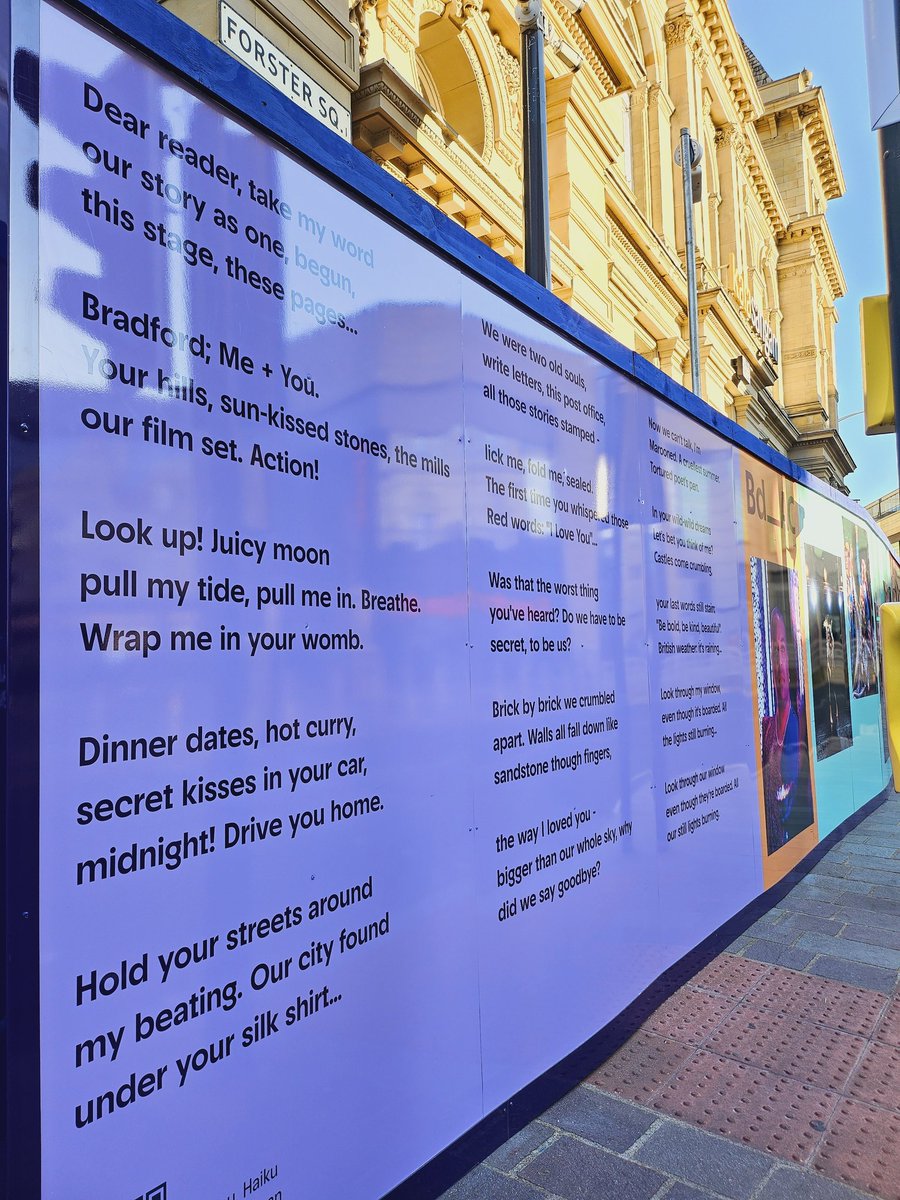 FORSTER SQ.
Dear reader, take my word
our story as one, begun,
this stage, these pages...
Bradford; Me + You.
Your hills, sun-kissed stones, the mills
our film set. Action!
Look up! Juicy moon
pull my tide, pull me in. Breathe.
Wrap me in your womb.
Dinner dates, hot curry,
secret kisses in your car,
midnight! Drive you home.
Hold your streets around
my beating. Our city found
under your silk shirt...
Haiku
We were two old souls,
write letters, this post office,
all those stories stamped -
lick me, fold me, sealed.
The first time you whispered those
Red words: "I Love You"...
Was that the worst thing
you've heard? Do we have to be
secret, to be us?
Brick by brick we crumbled
apart. Walls all fall down like
sandstone though fingers,
the way I loved you -
bigger than our whole sky, why
did we say goodbye?
Now we can't talk, I'm
Marooned: A cruellest summer.
Tortured poet's pen.
In your wild-wild dreams
Let's bet you think of me?
Castles come crumbling.
your last words still stain:
"Be bold, be kind, beautiful".
British weather: it's raining...
Look through my window,
even though it's boarded. All
the lights still burning...
Look through our window
even though they're boarded. All
our still lights burning.